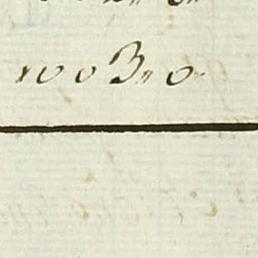 1003,, 0